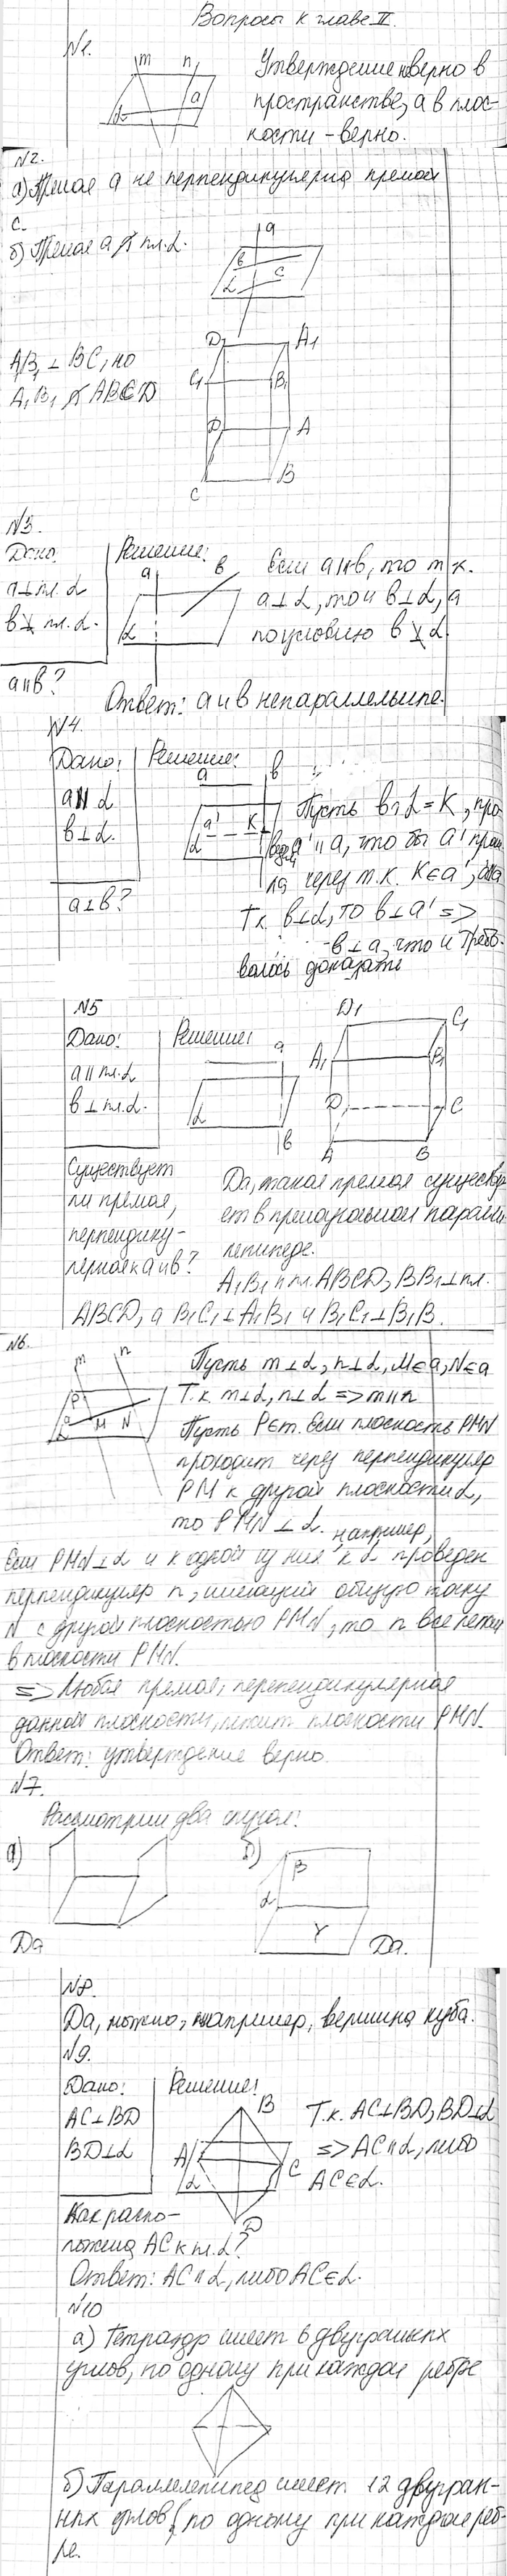 Вопросы к главе II.
№1.
m n
a
α
Утверждение неверно в
пространстве, а в плос-
кости - верно.
№2.
а) Прямая a не перпендикулярна прямой
c.
б) Прямая a ⊥̸ пл. α.
a
b
c
α
A₁B₁ ⊥ BC, но
A₁B₁ ⊥̸ ABCD
D₁ A₁
C₁ B₁
D A
C B
№3.
Дано:
a⊥пл. α
b⊥̸ пл. α.
a∥b?
Решение:
a b
α
Если a∥b, то т.к.
a⊥α, то и b⊥α, а
по условию b⊥̸α
Ответ: a и b непараллельные.
№4.
Дано:
a∥α
b⊥α.
a⊥b?
Решение:
a b
α a' K
Пусть b∩α=K, про
a'∥a, что бы a' про
ла через т.к. K∈a',
Т.к. b⊥α, то b⊥a' =>
b⊥a, что и требо-
валось доказать
№5
Дано:
a∥пл.α
b⊥пл.α.
Существует
ли прямая,
перпендику-
лярная к a и b?
Решение:
a
α
b
D₁ C₁
A₁ B₁
D C
A B
Да, такая прямая существу
ет в прямоугольном паралле
лепипеде.
A₁B₁ ∥ пл. ABCD, BB₁⊥пл.
ABCD, а B₁C₁⊥A₁B₁ и B₁C₁⊥B₁B.
№6.
m n
P
a M N
α
Пусть m⊥α, n⊥α, M∈a, N∈a
Т.к. m⊥α, n⊥α => m∥n
Пусть P∈m. Если плоскость PMN
проходит через перпендикуляр
PM к другой плоскости α,
то PMN⊥α.
например,
Если PMN⊥α и к одной из них к α проведен
перпендикуляр n, имеющий общую точку
N с другой плоскостью PMN, то n все лежит
в плоскости PMN.
=> Любая прямая, перпендикулярная
данной плоскости, лежит плоскости PMN.
Ответ: утверждение верно.
№7.
Рассмотрим два случая:
а)
Да
б)
β
α
γ
Да.
№8.
Да, можно, например, вершина куба.
№9.
Дано:
AC⊥BD
BD⊥α
Как распо-
ложена AC к пл. α?
Решение:
B
A C
α
D
Т.к. AC⊥BD, BD⊥α
=> AC∥α, либо
AC∈α.
Ответ: AC∥α, либо AC∈α.
№10
а) Тетраэдр имеет 6 двугранных
углов, по одному при каждом ребре
б) Параллелепипед имеет 12 двугран-
ных углов (по одному при каждом реб-
ре.